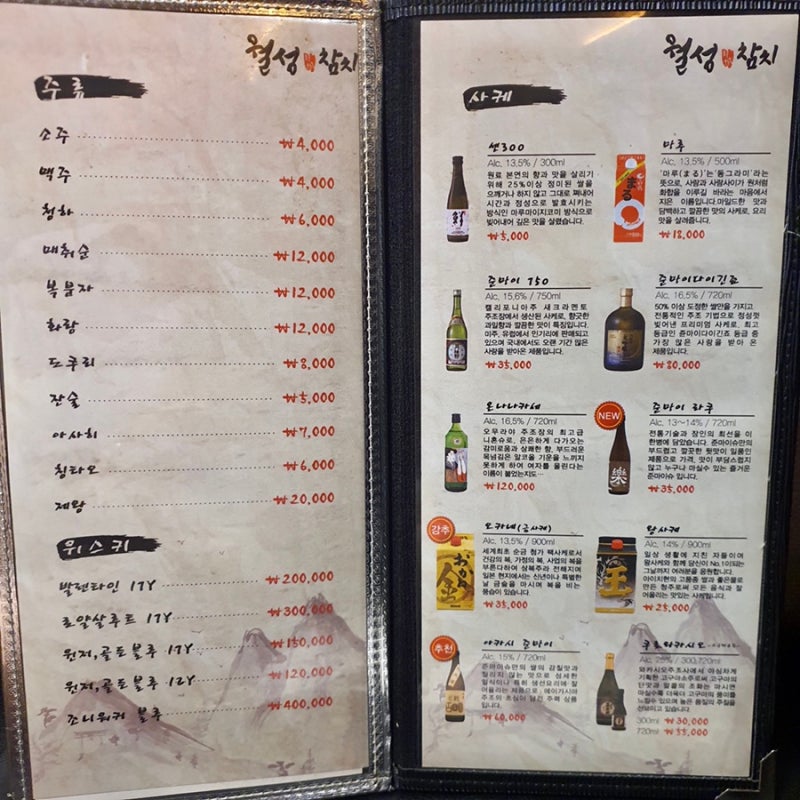 월성 참치
주류
소주 ₩4,000
맥주 ₩4,000
청하 ₩6,000
매취순 ₩12,000
복분자 ₩12,000
화랑 ₩12,000
도쿠리 ₩8,000
잔술 ₩5,000
아사히 ₩7,000
칭타오 ₩6,000
제왕 ₩20,000
위스키
발렌타인 17Y ₩200,000
로얄살루트 17Y ₩300,000
윈저,골드블루 17Y ₩150,000
윈저,골드블루 12Y ₩120,000
조니워커 블루 ₩400,000
월성 참치
사케
센300
Alc, 13.5% / 300ml
원료 본연의 향과 맛을 살리기
위해 25%이상 정미된 쌀을
으깨거나 하지 않고 그대로 쪄내어
시간과 정성으로 발효시키는
방식인 마루마이지코미 방식으로
빚어내어 깊은 맛을 살렸습니다.
₩5,000
마루
Alc, 13.5% / 500ml
'마루(まる)'는 '동그라미'라는
뜻으로, 사람과 사람사이가 원처럼
화합을 이루길 바라는 마음에서
지은 이름입니다.마일드한 맛과
담백하고 깔끔한 맛의 사케로, 요리
맛을 살려줍니다.
₩18,000
준마이 750
Alc, 15.6% / 750ml
캘리포니아주 새크라멘토
주조장에서 생산된 사케로, 향긋한
과일향과 깔끔한 맛이 특징입니다.
미주, 유럽에서 인기리에 판매되고
있으며 국내에서도 오랜 기간 많은
사랑을 받아온 제품입니다.
₩35,000
준마이다이긴죠
Alc, 16.5% / 720ml
50% 이상 도정한 쌀만을 가지고
전통적인 주조 기법으로 정성껏
빚어낸 프리미엄 사케로, 최고
등급인 준마이다이긴죠 등급 중
가장 많은 사랑을 받아 온
제품입니다.
₩80,000
온나나카세
Alc, 16.5% / 720ml
오무라야 주조장의 최고급
니혼슈로, 은은하게 다가오는
감미로움과 상쾌한 향, 부드러운
목넘김은 알코올 기운을 느끼지
못하게 하여 여자를 울린다는
이름이 붙었는지도…
₩120,000
NEW
준마이 라쿠
Alc, 13~14% / 720ml
전통기술과 장인의 최선을 이
한병에 담았습니다. 준마이슈만의
부드럽고 깔끔한 뒷맛이 일품인
제품으로 가격, 맛이 부담스럽지
않고 누구나 마실수 있는 즐거운
준마이슈 입니다.
₩35,000
강추
오카네(금사케)
Alc, 13.5% / 900ml
세계최초 순금 첨가 팩사케로서
건강의 복, 가정의 복, 사업의 복을
부른다하여 삼복주라 전해지며
일본 현지에서는 신년이나 특별한
날 금술을 마시며 복을 비는
풍습이 있습니다.
₩35,000
왕사케
Alc, 14% / 900ml
일상 생활에 지친 자들이여
왕사케와 함께 당신이 No.1이되는
그날까지 여러분을 응원합니다.
아이치현의 고품종 쌀과 좋은물로
만든 청주로써 모든 음식과 잘
어울리는 맛있는 사케입니다.
₩25,000
추천
아카시 준마이
Alc, 15% / 720ml
준마이슈만의 쌀의 감칠맛과
₩60,000
Alc, 25% / 300,720ml
300ml ₩30,000
720ml ₩55,000